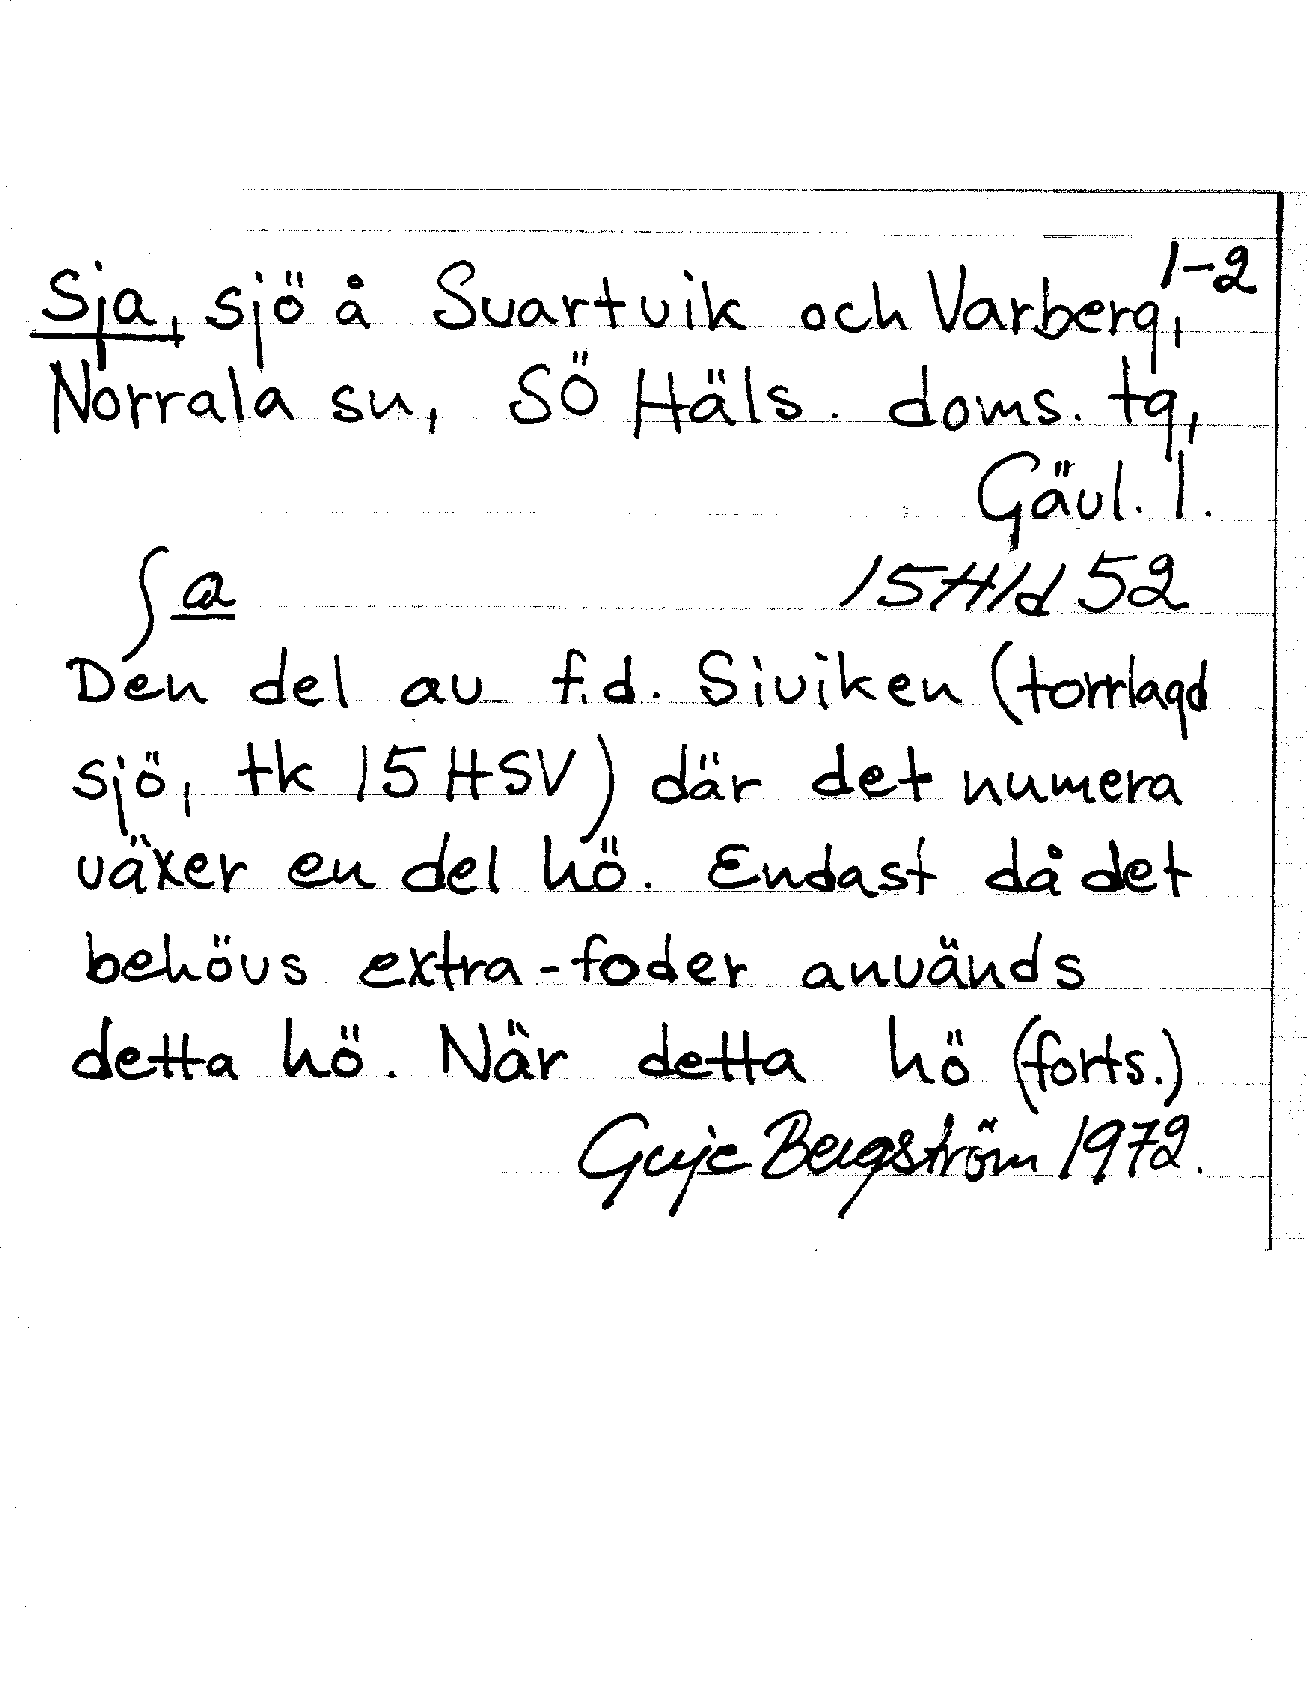 1-2
Sja, sjö å Svartvik och Varberg,
Norrala sn, SÖ Häls. doms. tg,
Gävl. l.
ʃɑ 15H1d 52
Den del av f.d. Siviken (torrlagd
sjö, tk 15HSV) där det numera
växer en del hö. Endast då det
behövs extra-foder används
detta hö. När detta hö (forts.)
Bergström 1972.